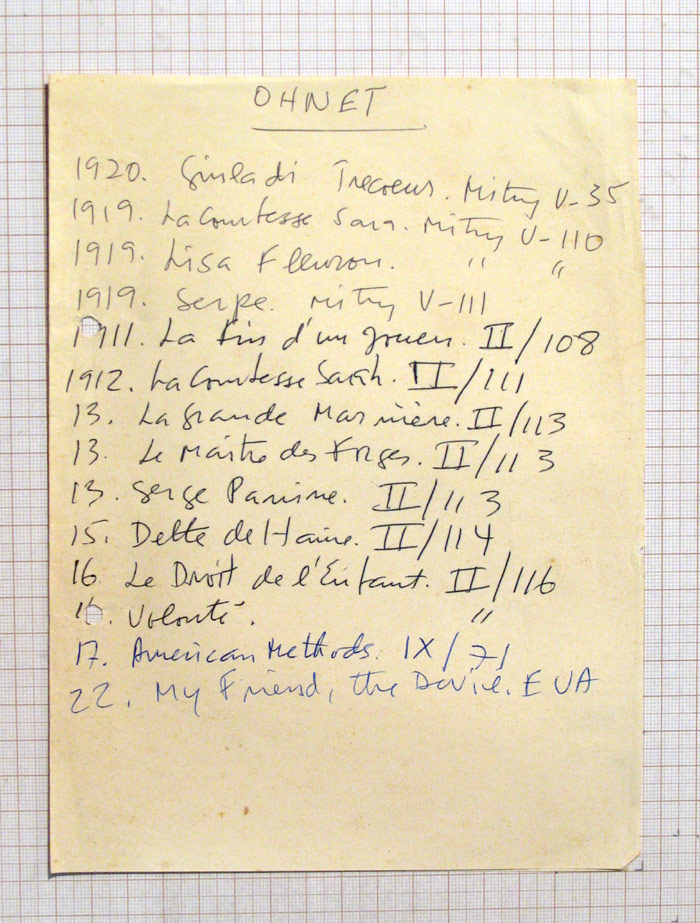 OHNET
1920. Trecoeur. Mitry V-35
1919. La Comtesse Sara. Mitry V-110
1919. Lisa Fleuron. " "
1919. Serpe. Mitry V-111
1911. La Fin d'un joueur. II/108
1912. La Comtesse Sarah. II/111
13. La Grande Marnière. II/113
13. Le Maître des Forges. II/113
13. Serge Panine. II/113
15. Dette de Haine. II/114
16 Le Droit de l'Enfant. II/116
Volonté. "
17. American Methods. IX/71
22. My Friend, the Devil. EUA